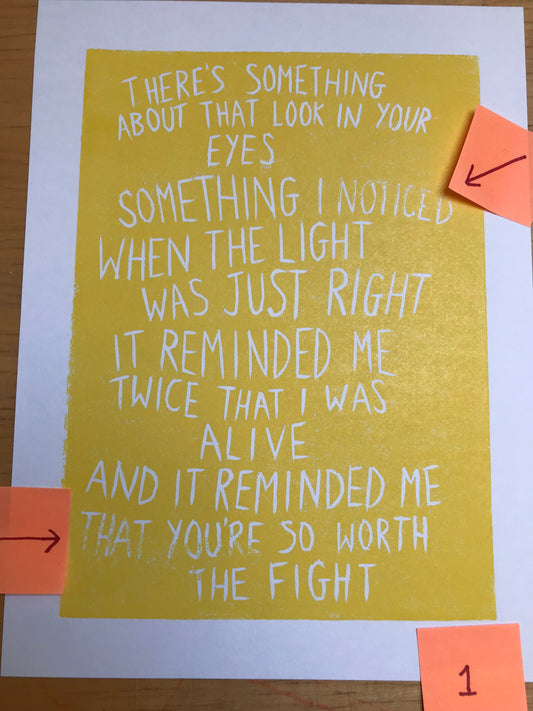 THERE'S SOMETHING
ABOUT THAT LOOK IN YOUR
EYES
SOMETHING I NOTICED
WHEN THE LIGHT
WAS JUST RIGHT
IT REMINDED ME
TWICE THAT I WAS
ALIVE
AND IT REMINDED ME
THAT YOU'RE SO WORTH
THE FIGHT
1